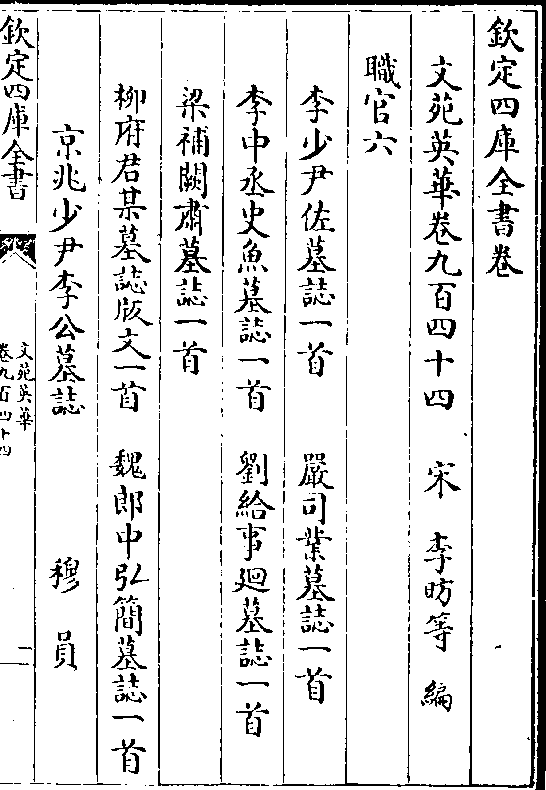 欽定四庫全書卷
文苑英華卷九百四十四　宋　李昉等　編
職官六
李少尹佐墓誌一首　嚴司業墓誌一首
李中丞史魚墓誌一首　劉給事迴墓誌一首
梁補闕肅墓誌一首
柳府君某墓誌版文一首　魏郎中弘簡墓誌一首
京兆少尹李公墓誌　穆員
欽定四庫全書
文苑英華
卷九百四十四
一